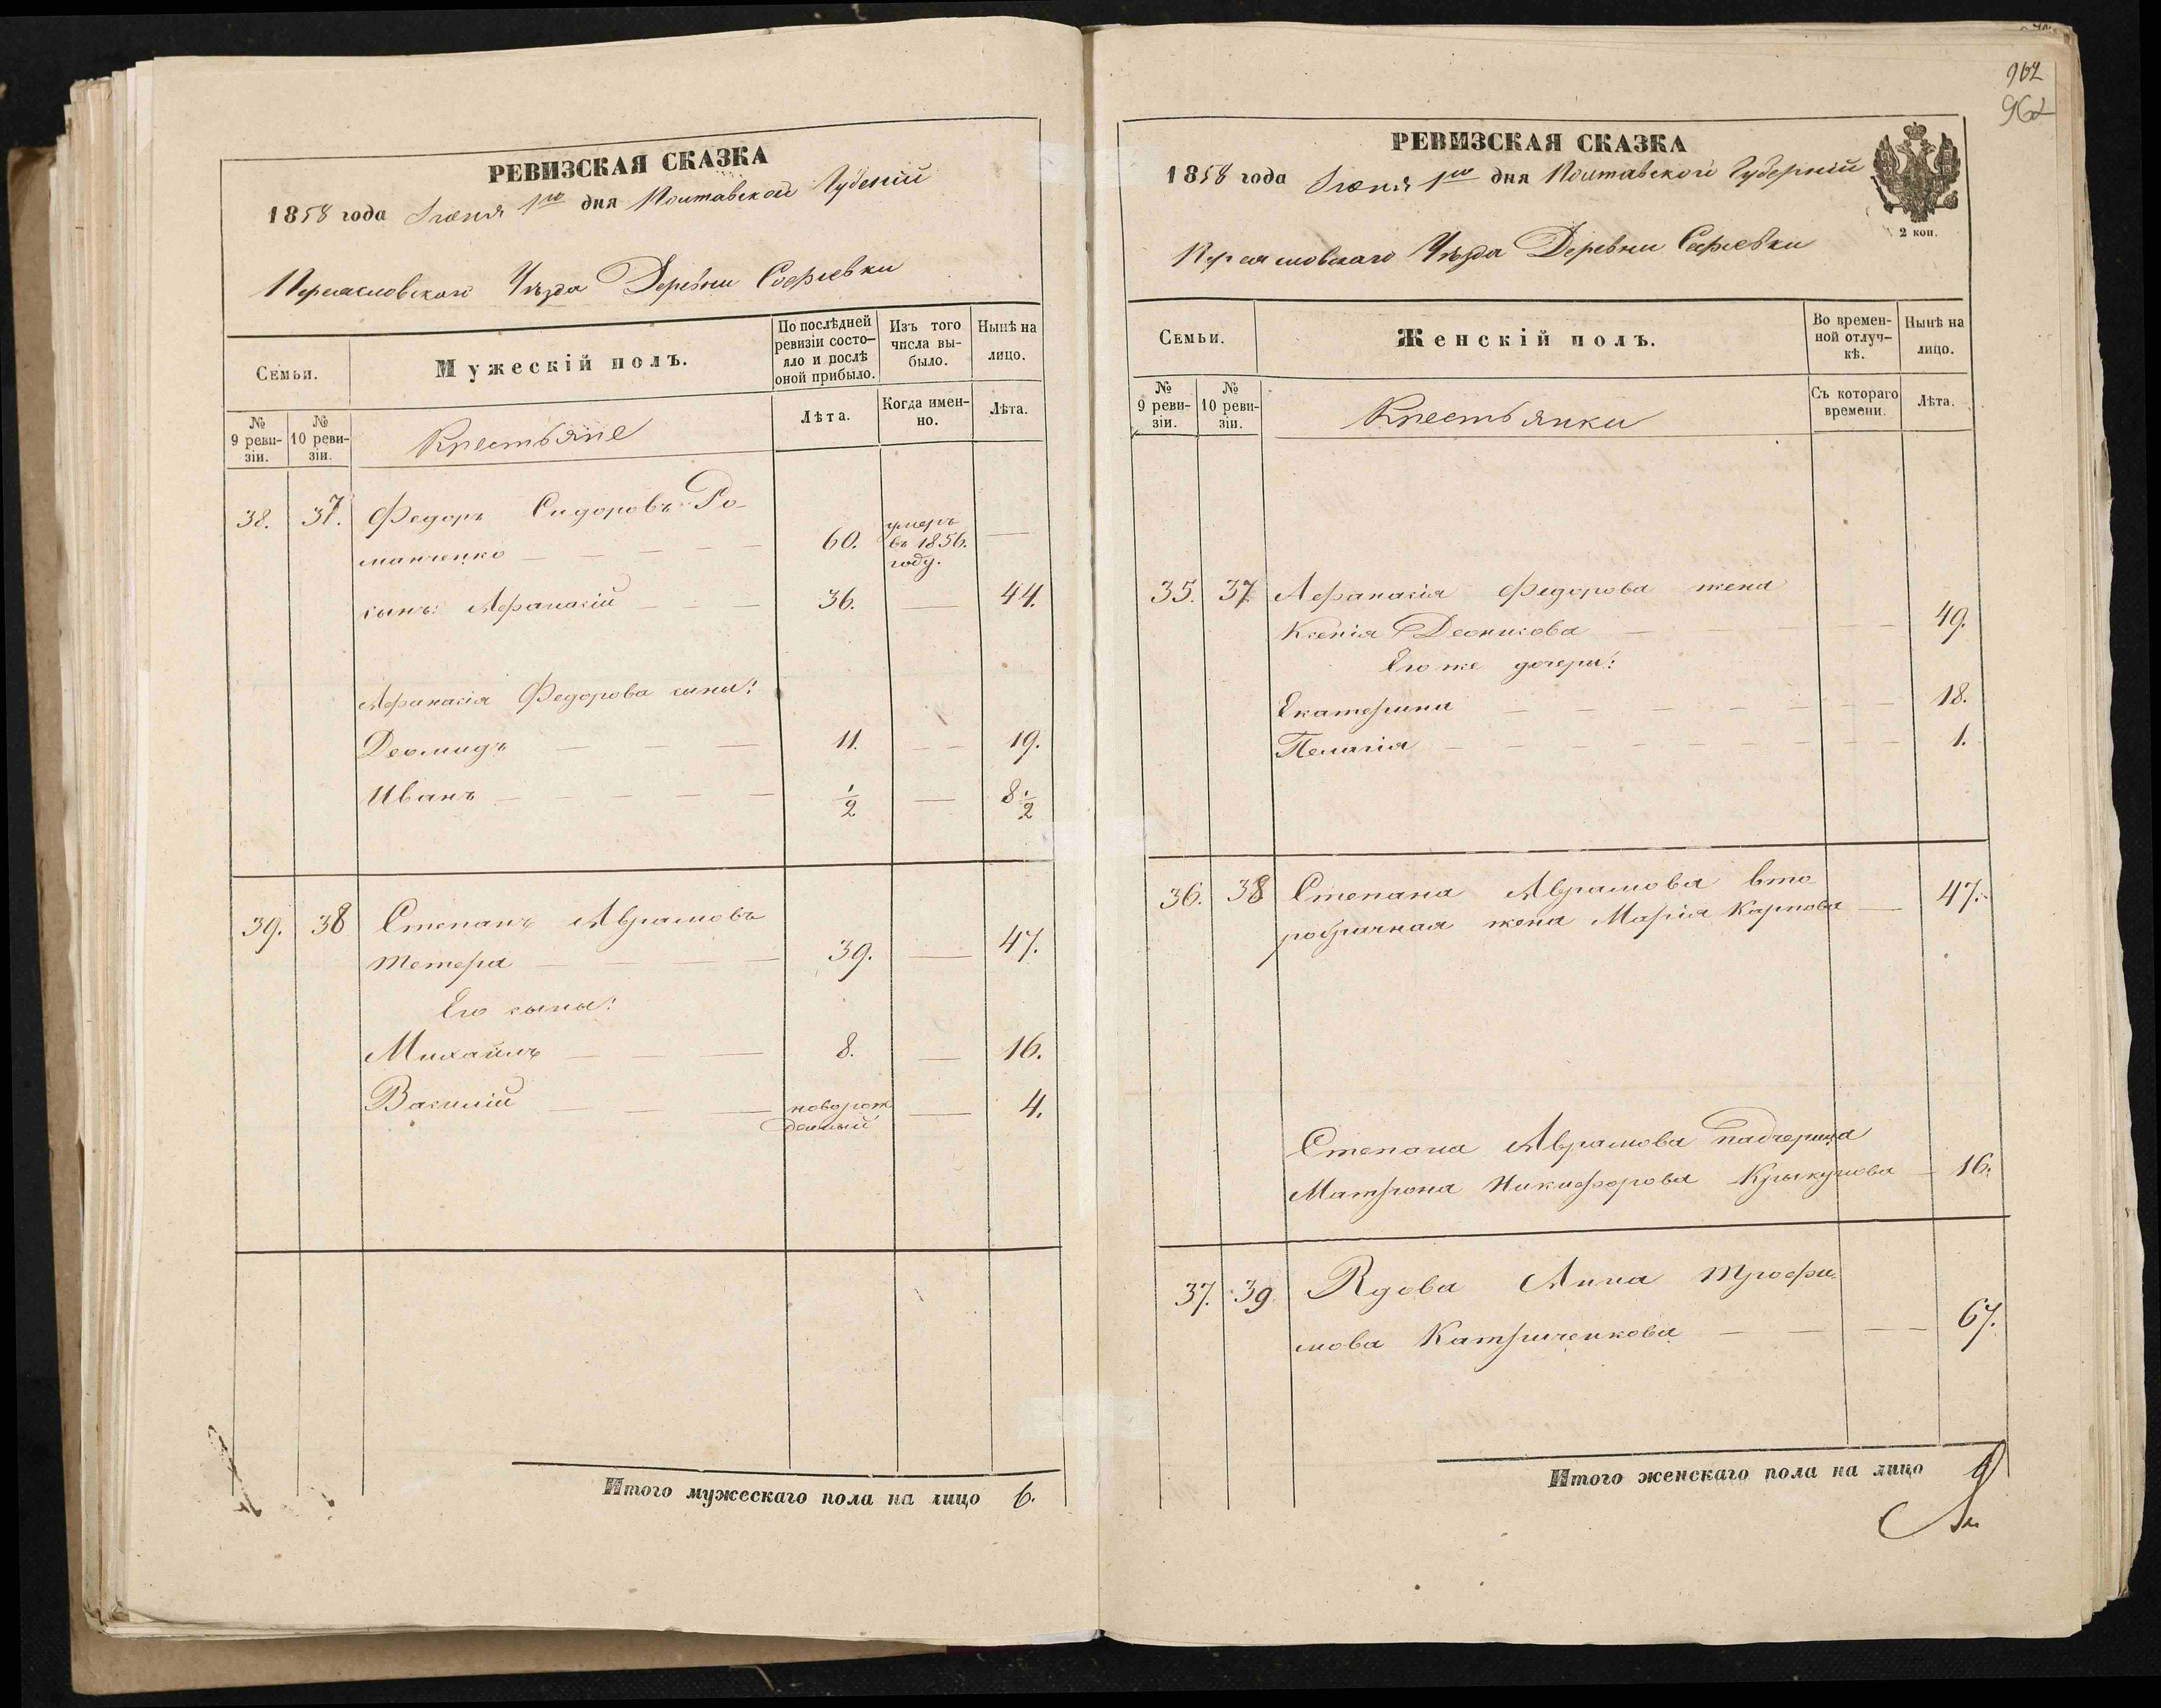 РЕВИЗСКАЯ СКАЗКА
1858 года Іюня 1го дня Полтавской Губеніи
Переяславскаго Уѣзда Деревни Софіевки
Семьи.
Мужескій полъ.
По послѣдней ревизіи состояло и послѣ оной прибыло.
Изъ того числа выбыло.
Нынѣ на лицо.
№ 9 ревизіи.
№ 10 ревизіи.
Крестьяне
Лѣта.
Когда именно.
Лѣта.
38. 37. Федоръ Сидоровъ Ро-
манченко — — — — — 60. умеръ въ 1856. году. —
сынъ: Афанасій — — — 36. — 44.
Афанасія Федорова сыны:
Деомидъ — — — 11. — — 19.
Иванъ — — — — — 1/2 — 8 1/2
39. 38 Степанъ Аврамовъ
Тетера — — — — 39. — 47.
Его сыны:
Михаилъ — — — 8. — 16.
Василій — — — новорож
денный — 4.
Итого мужескаго пола на лицо 6.
962
962
РЕВИЗСКАЯ СКАЗКА
1858 года Іюня 1го дня Полтавской Губерніи
2 коп.
Переяславскаго Уѣзда Деревни Софіевки
Семьи.
Женскій полъ.
Во временной отлучкѣ.
Нынѣ на лицо.
№ 9 ревизіи.
№ 10 ревизіи.
Крестьянки
Съ котораго времени.
Лѣта.
35. 37. Афанасія Федорова жена
Ксенія — — — 49.
Его же дочери:
Екатерина — — — — — — — 18.
Пелагія — — — — — — — — 1.
36. 38 Степана Аврамова вто
робрачная жена Марія Карпова — 47.
Степана Аврамова падчерица
Матрона Никифорова Крикунова — 16.
37. 39 Вдова Анна Трофи-
мова Катриченкова — — — — 67.
Итого женскаго пола на лицо